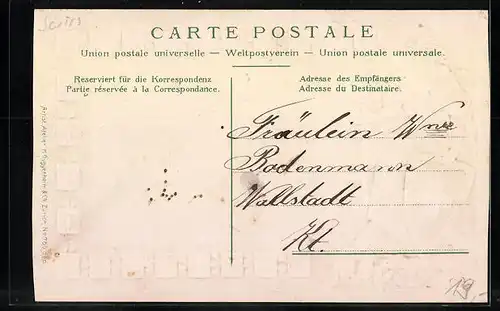 CARTE POSTALE
Union postale universelle — Weltpostverein — Union postale universale.
Reserviert für die Korrespondenz
Partie réservée à la Correspondance.
Adresse des Empfängers
Adresse du Destinataire.
Fräulein Wwe
Bodenmann
Wallstadt
Kt.